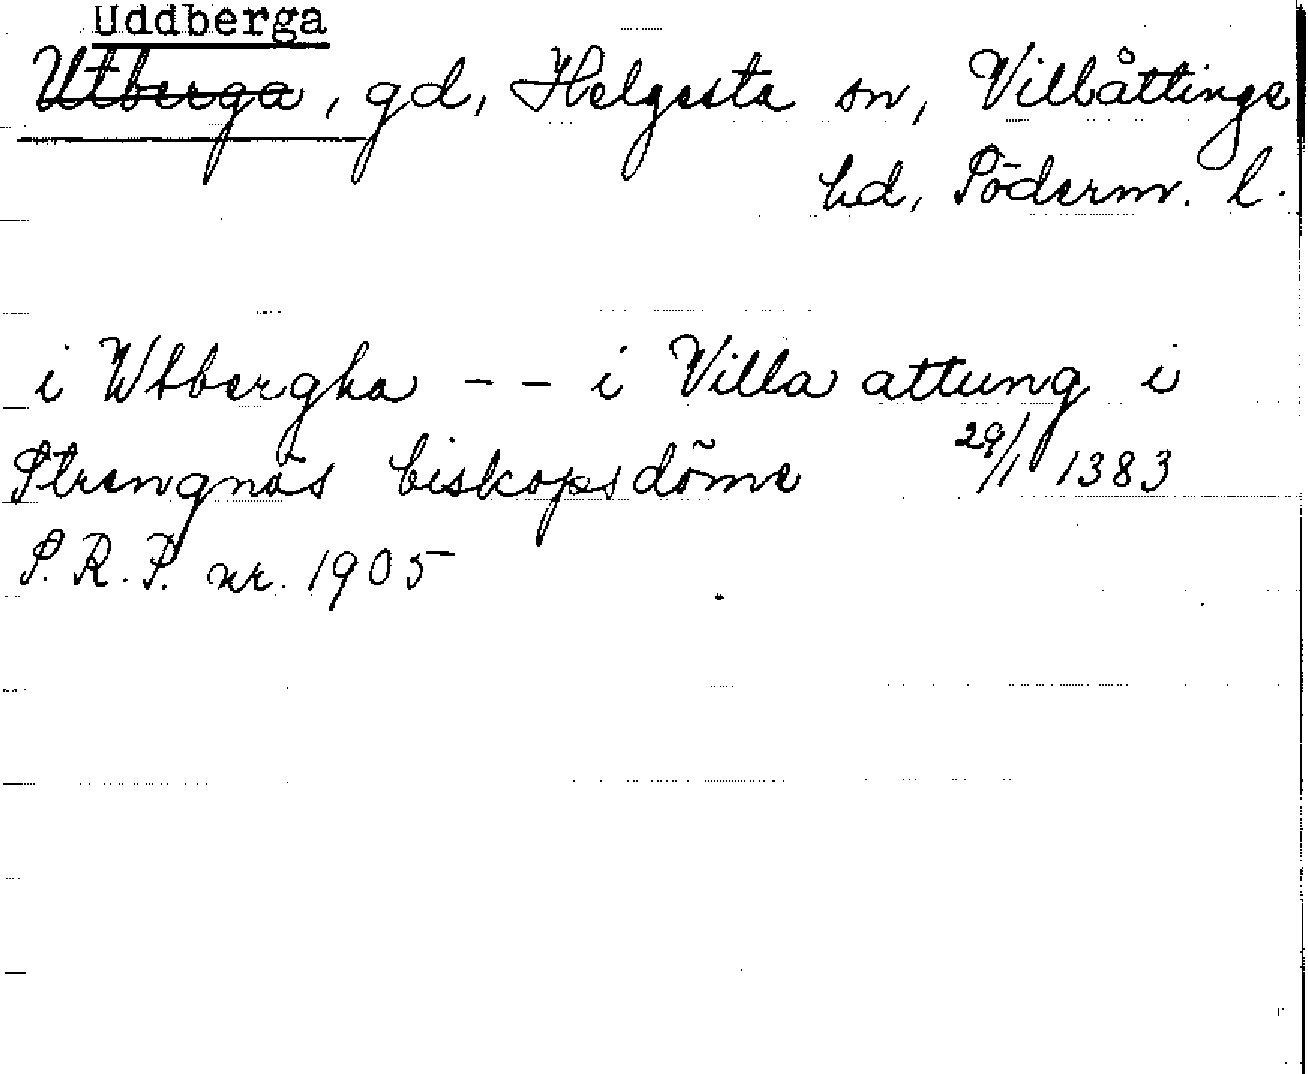 Uddberga
Utberga, gd, Helgesta sn, Villåttinge
hd, Söderm. l.
i Wtbergha - - i Villa attung i
Strengnäs biskopsdöme 29/1 1383
S.R.P. nr. 1905